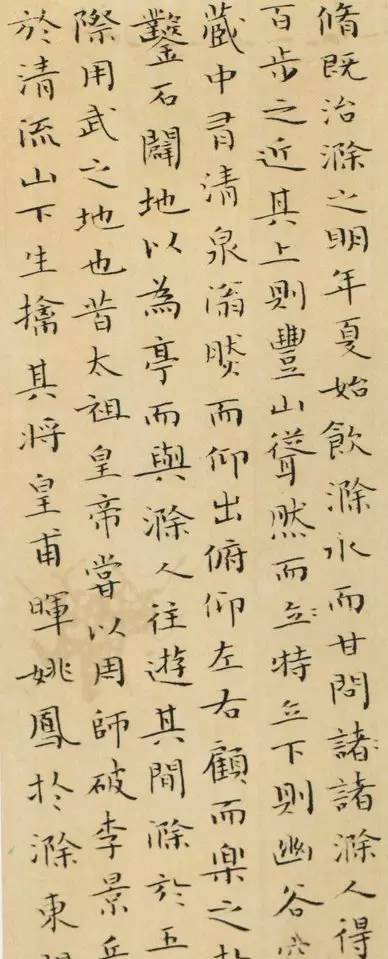 脩既治滁之明年夏始飲滁水而甘問諸諸滁人得
百步之近其上則豐山聳然而立特立下則幽谷
藏中有清泉滃然而仰出俯仰左右顧而楽之
鑿石闢地以為亭而與滁人往遊其間滁於五
際用武之地也昔太祖皇帝嘗以周師破李景
於清流山下生擒其將皇甫暉姚鳳於滁東